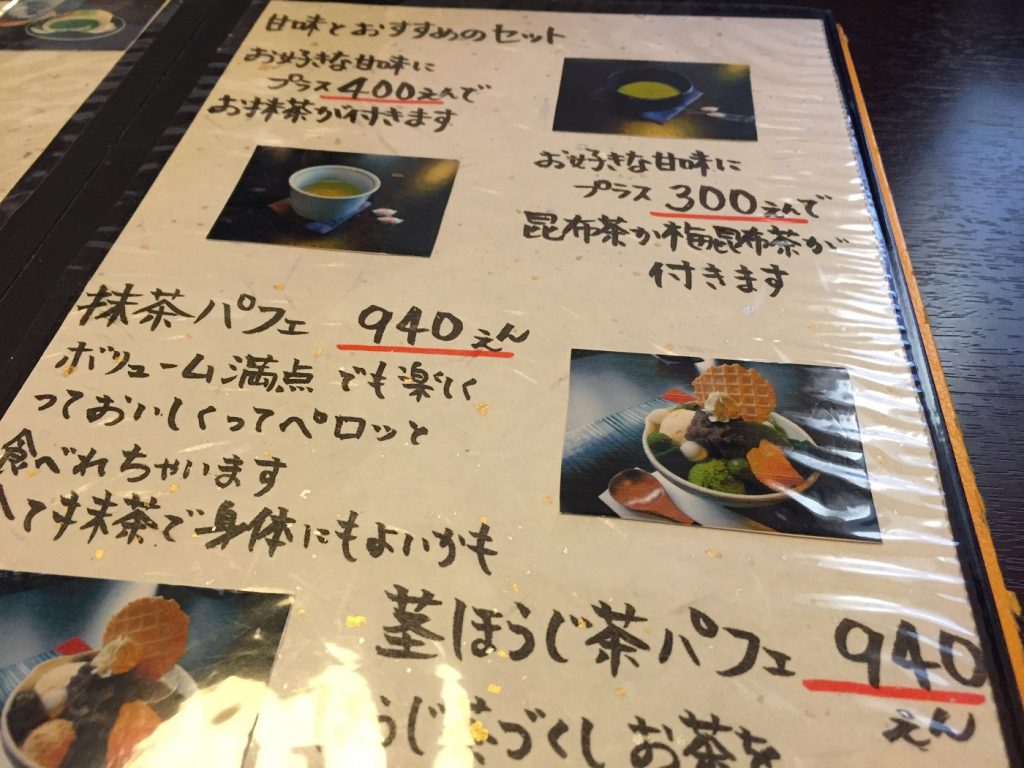 甘味とおすすめのセット
お好きな甘味に
プラス400えんで
お抹茶が付きます
お好きな甘味に
プラス 300えんで
昆布茶か梅昆布茶が
付きます
抹茶パフェ 940えん
ボリューム満点 でも楽しく
っておいしくってペロッと
食べれちゃいます
て抹茶で身体にもよいかも
茎ほうじ茶パフェ 940
えん
うじ茶づくし お茶を